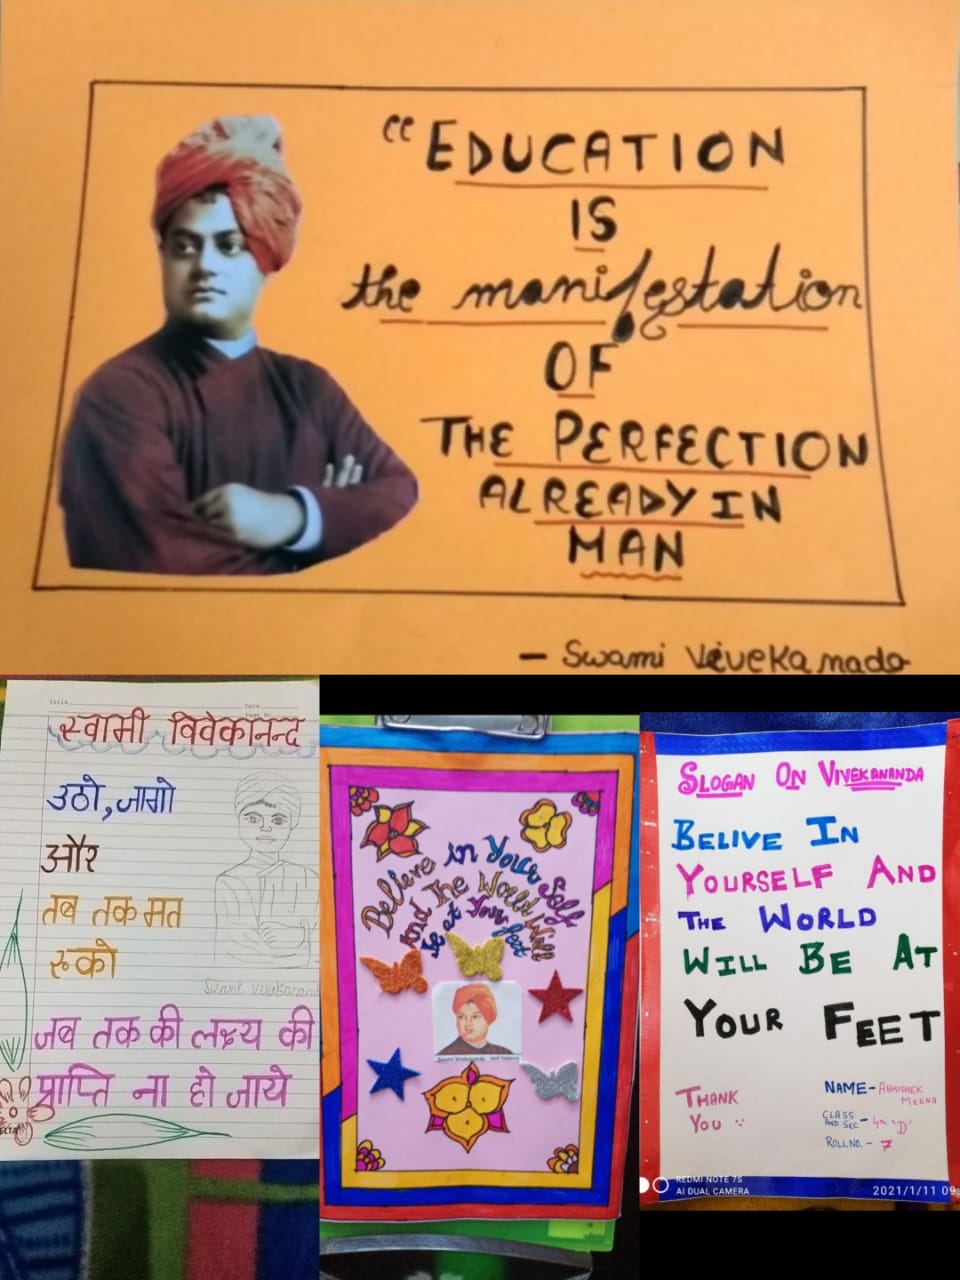 “EDUCATION
IS
the manifestation
OF
THE PERFECTION
ALREADY IN
MAN
— Swami Vivekanada
स्वामी विवेकानन्द
उठो, जागो
और
तब तक मत
रुको
Swami Vivekanand
जब तक की लक्ष्य की
प्राप्ति ना हो जाये
Believe in Your Self
And The World Will
be at Your feet
Swami Vivekananda
SLOGAN ON VIVEKANANDA
BELIVE IN
YOURSELF AND
THE WORLD
WILL BE AT
YOUR FEET
THANK
YOU
NAME - ABHISHEK
MEENA
CLASS
AND SEC - 4th 'D'
ROLL NO. - 7
REDMI NOTE 7S
AI DUAL CAMERA
2021/1/11 09